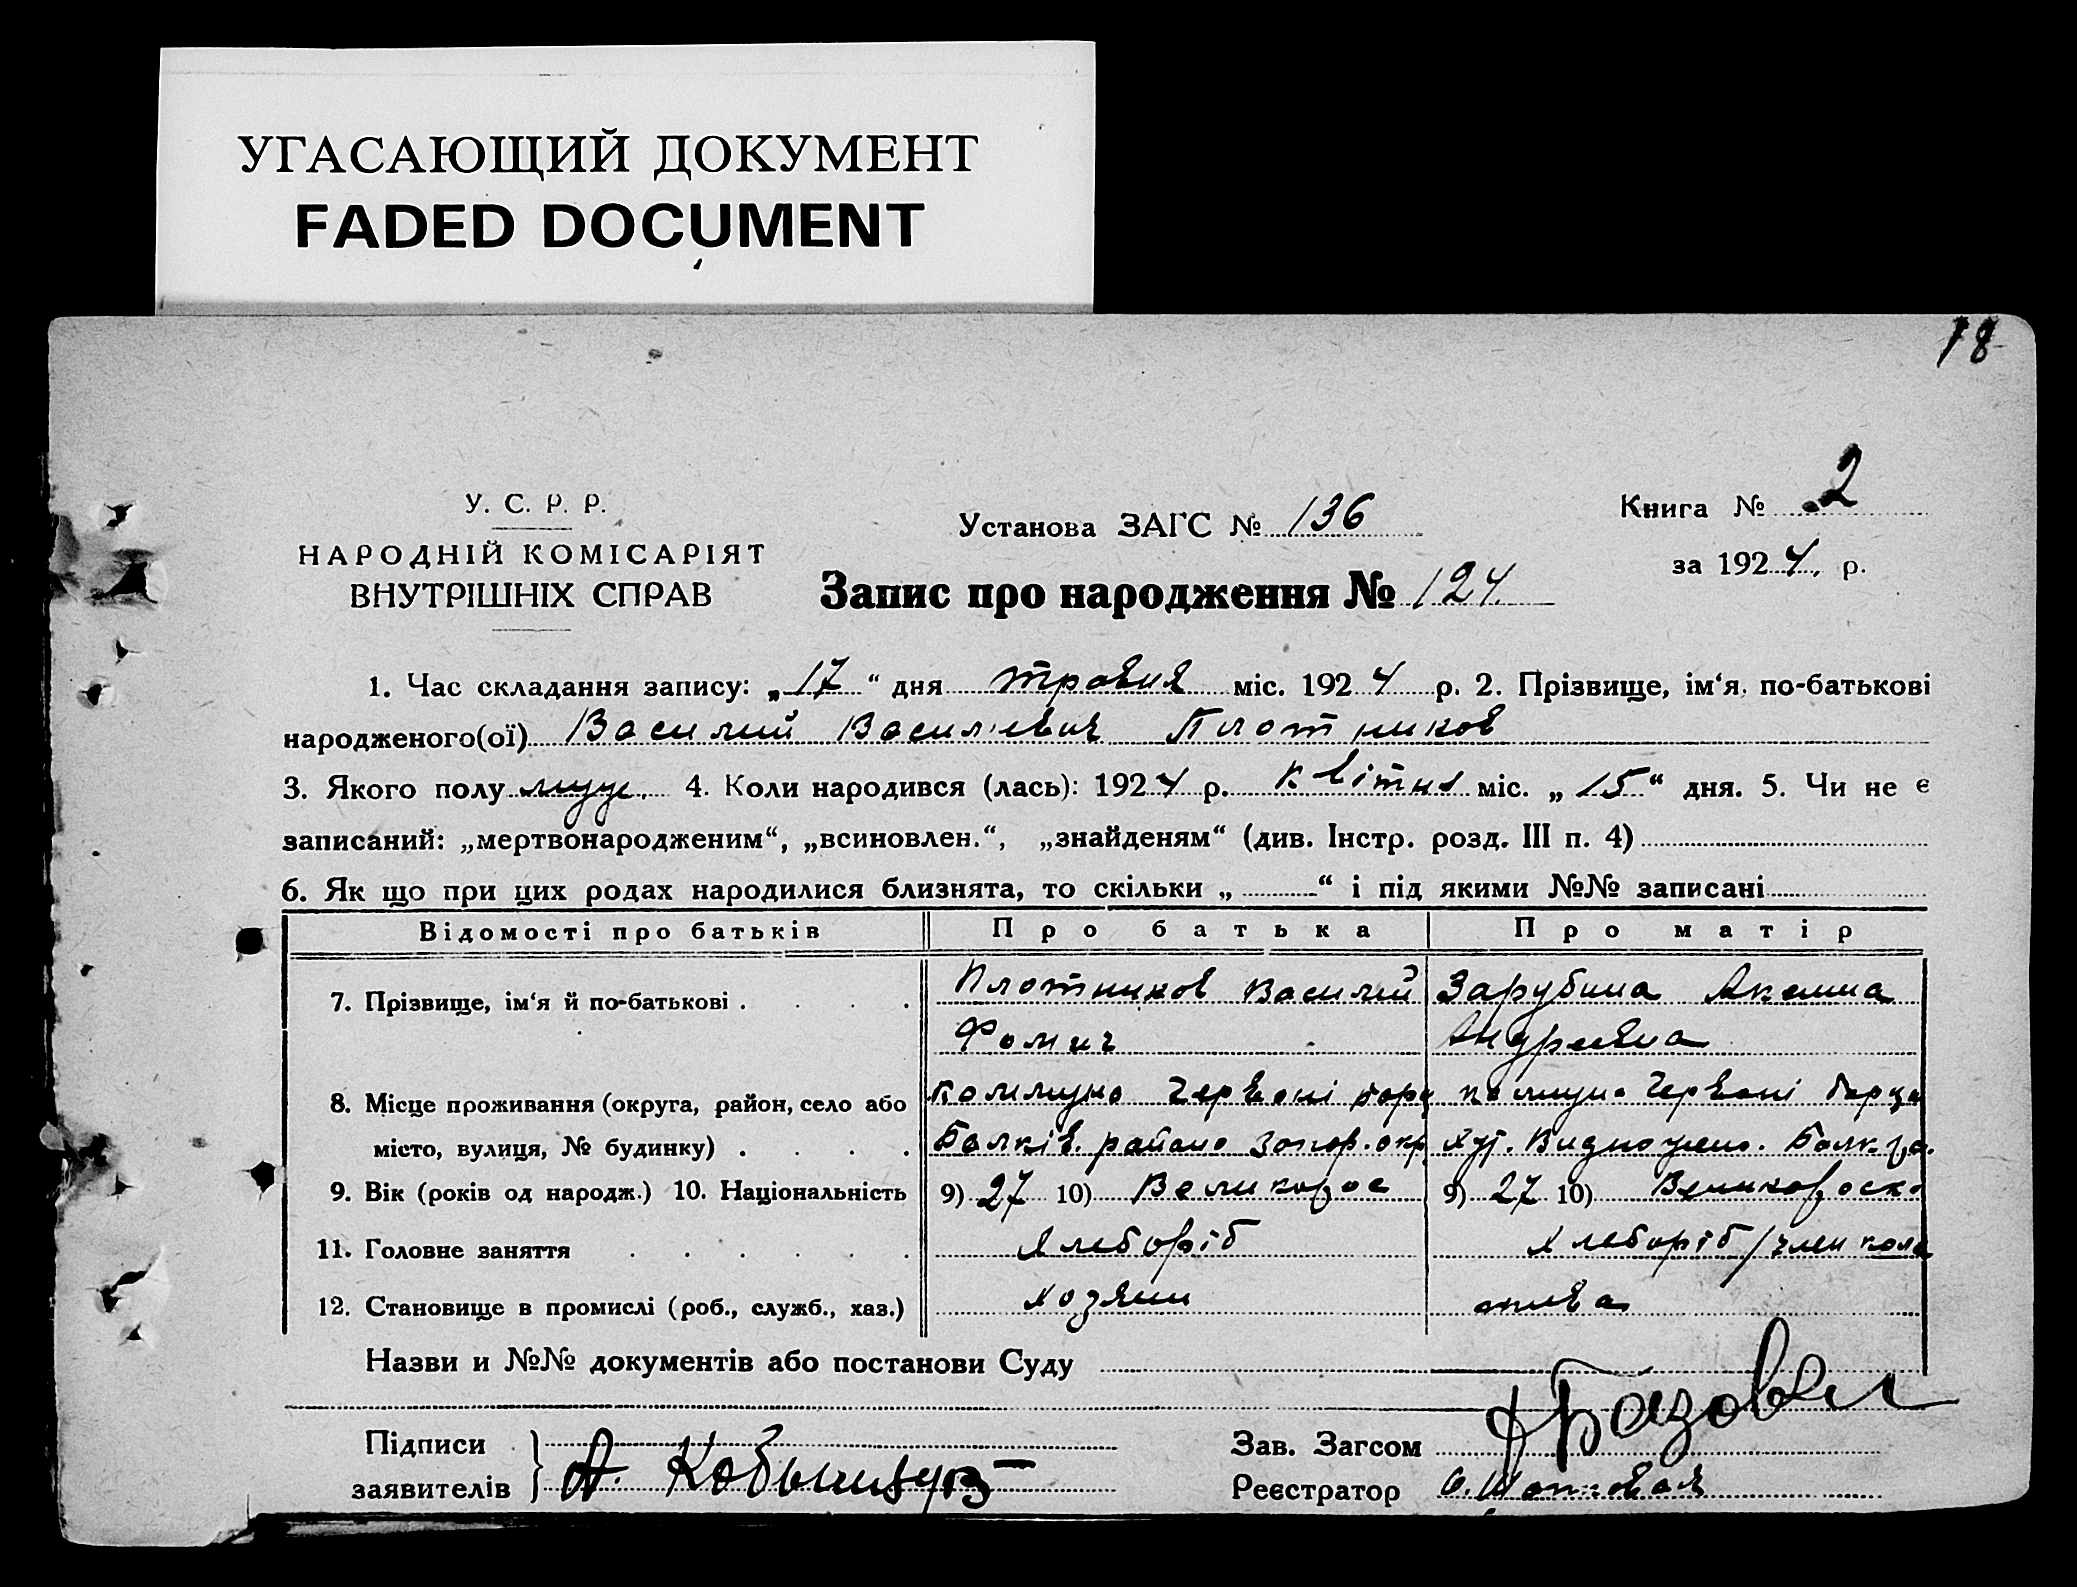 УГАСАЮЩИЙ ДОКУМЕНТ
FADED DOCUMENT
18
У. С. Р. Р.
НАРОДНІЙ КОМІСАРІЯТ
ВНУТРІШНІХ СПРАВ
Установа ЗАГС № 136
Книга № 2
за 1924 р.
Запис про народження № 124
1. Час складання запису: „17“ дня травня міс. 1924 р. 2. Прізвище, ім‘я, по-батькові
народженого(ої) Василий Васильевич Плотников
3. Якого полу муж. 4. Коли народився (лась): 1924 р. квітня міс. „15“ дня. 5. Чи не є
записаний: „мертвонародженим“, „всиновлен.“, „знайденям“ (див. Інстр. розд. III п. 4)
6. Як що при цих родах народилися близнята, то скільки „ “ і під якими №№ записані
Відомості про батьків Про батька Про матір
7. Прізвище, ім‘я й по-батькові . Плотников Василий Зарубина Акелина
Фомич Андреевна
8. Місце проживання (округа, район, село або Коммуна Червоні борц комуна Червоні борца
місто, вулиця, № будинку) . Балків. района Запор. окр. хут.
9. Вік (років од народж.) 10. Національність 9) 27 10) Великорос 9) 27 10)
11. Головне заняття Хлебороб Хлебороб/член колек
12. Становище в промислі (роб., служб., хаз.) хозяин тива
Назви и №№ документів або постанови Суду
Підписи
заявителів А.
Зав. Загсом
Реєстратор